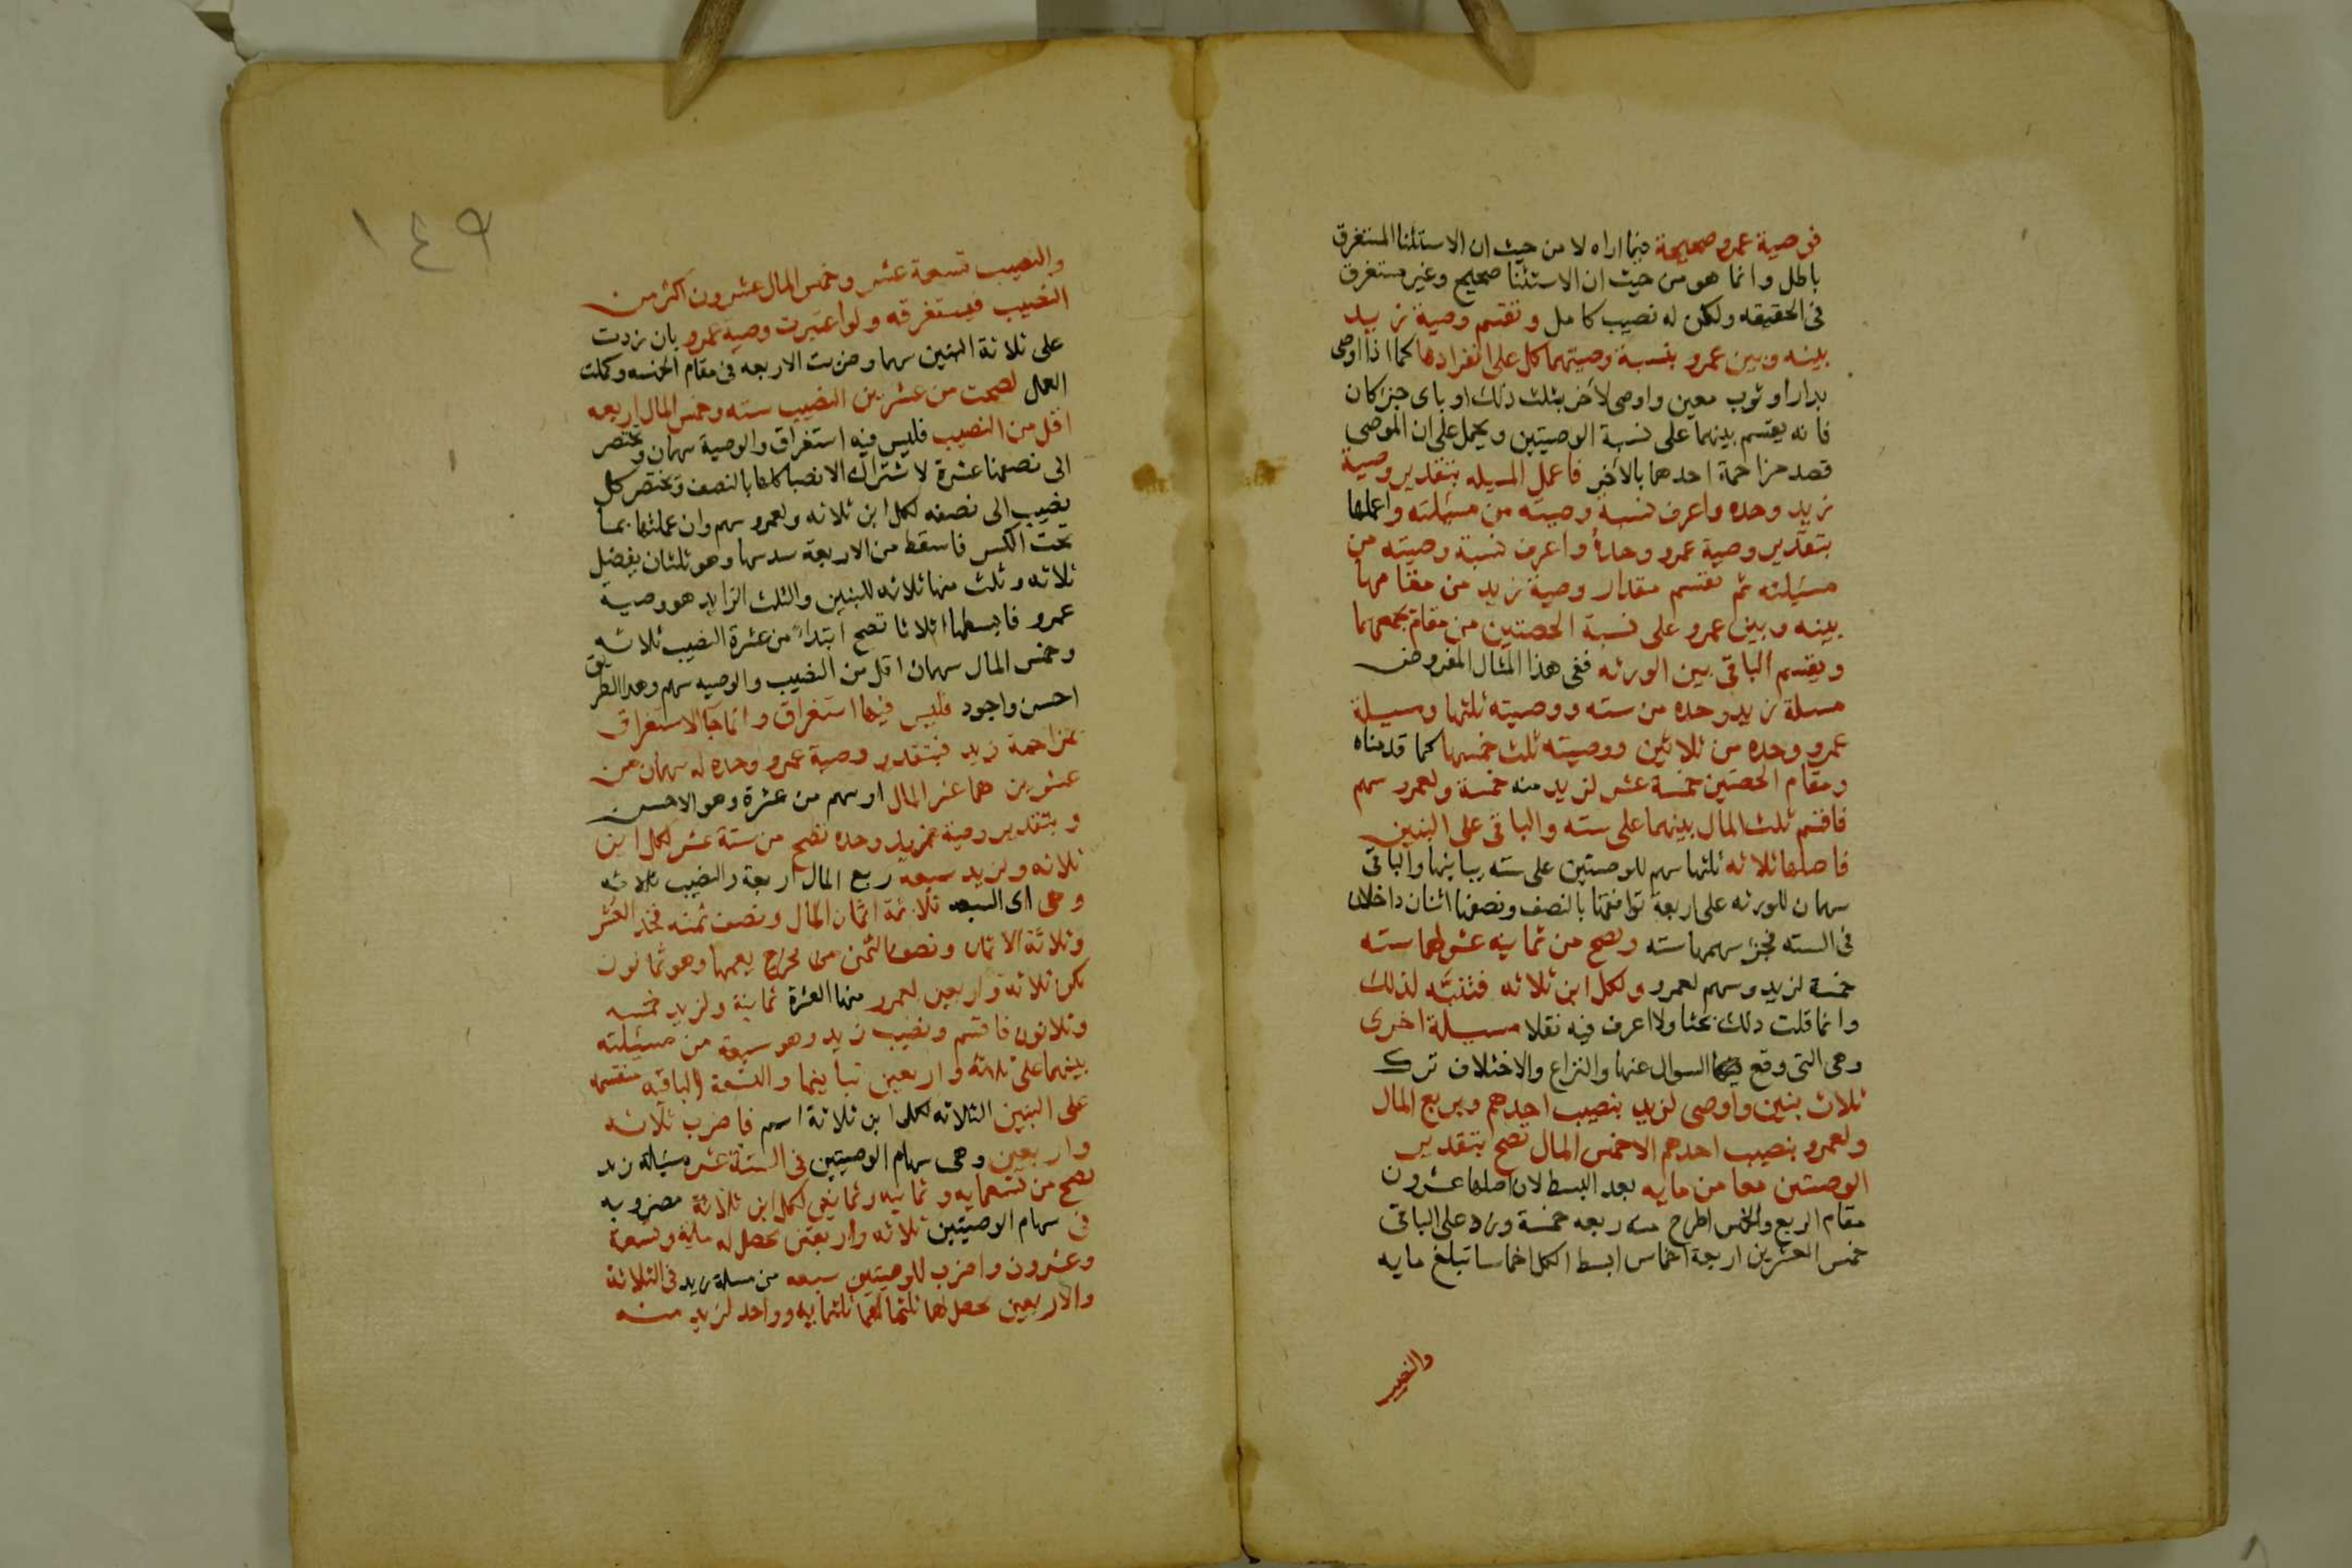 فوصية عمرو صحيحة فيما اراه لا من حيث ان الاستثنا المستغرق
باطل وانما هو من حيث ان الاستثنا صحيح وغير مستغرق
فى الحقيقه ولكن له نصيب كامل وتقتسم وصية زيد
بينه وبين عمرو بنسبة وصيتهما كل على انفرادها كما اذا اوصى
بدار او ثوب معين واوصى لاخر بثلث ذلك او باى جزء كان
فانه يقتسم بينهما على نسبة الوصيتين ويحمل على ان الموصى
قصد مزاحمة احدهما بالاخر فاعمل المسيله بتقدير وصية
زيد وحده واعرف نسبة وصيته من مسئلته واعملها
بتقدير وصية عمرو وحده واعرف نسبة وصيته من
مسئلته ثم تقسم مقدار وصية زيد من مقامها
بينه وبين عمرو على نسبة الحصتين من مقام يجمعهما
ويقسم الباقى بين الورثه ففى هذا المثال المفروض
مسلة زيد وحده من سته ووصيته ثلثها ومسيلة
عمرو وحده من ثلاثين ووصيته ثلث خمسها كما قدمناه
ومقام الحصتين خمسة عشر لزيد منه خمسة ولعمرو سهم
فاقسم ثلث المال بينهما على سته والباقى على البنين
فاصلها ثلاثه ثلثها سهم للوصيتين على سته يباينها والباقى
سهمان للورثه على اربعة توافقها بالنصف ونصفها اثنان داخلان
فى السته فجزء سهمها سته وتصح من ثمانية عشر لهما سته
خمسة لزيد وسهم لعمرو ولكل ابن ثلاثه فتنبه لذلك
وانما قلت ذلك بحثا ولا اعرف فيه نقلا مسيلة اخرى
وهى التى وقع السوال عنها والنزاع والاختلاف ترك
ثلاث بنين واوصى لزيد بنصيب احدهم وبربع المال
ولعمرو بنصيب احدهم الاخمس المال تصح بتقدير
الوصيتين معا من مايه بعد البسط لان اصلها عشرون
مقام الربع والخمس اطرح منه ربعه خمسة وزد على الباقى
خمس العشرين اربعة اخماس ابسط الكل اخماسا تبلغ مايه
والنصيب
١٤٩
والنصيب تسعة عشر وخمس المال عشرون اكثر من
النصيب فيستغرقه ولو اعتبرت وصية عمرو بان زدت
على ثلاثة البنين سهما وضربت الاربعه فى مقام الخمسه وكملت
العمل لصحت من عشرين النصيب سته وخمس المال اربعه
اقل من النصيب فليس فيه استغراق والوصية سهمان وتختصر
الى نصفها عشرة لاشتراك الانصبا كلها بالنصف وتختصر كل
نصيب الى نصفه لكل ابن ثلاثه ولعمرو سهم وان عملتها بما
تحت الكسر فاسقط من الاربعة سدسها وهو ثلثان يفضل
ثلاثه وثلث منها ثلاثه للبنين والثلث الزايد هو وصية
عمرو فابسطها اثلاثا تصح ابتداً من عشرة النصيب ثلاثه
وخمس المال سهمان اقل من النصيب والوصيه سهم وهذا الطريق
احسن واجود فليس فيها استغراق وانما جا الاستغراق
بمزاحمة زيد فبتقدير وصية عمرو وحده له سهمان من
عشرين هما عشر المال او سهم من عشرة وهو الاحسن
وبتقدير وصية زيد وحده تصح من ستة عشر لكل ابن
ثلاثه ولزيد سبعه ربع المال اربعة والنصيب ثلاثه
وهى اى السبعه ثلاثة اثمان المال ونصف ثمنه فخذ العشر
وثلاثة الاثمان ونصف الثمن من مخرج يعمها وهو ثمانون
تكن ثلاثه واربعين لعمرو منها العشرة ثمانية ولزيد خمسه
وثلاثون فاقسم ونصيب زيد وهو سبعة من مسئلته
بينهما على ثلاثه واربعين تباينها والتسعة الباقيه منقسمه
على البنين الثلاثه لكل ابن ثلاثة اسهم فاضرب ثلاثه
واربعين وهى سهام الوصيتين فى الستة عشر مسئلة زيد
تصح من ستمايه وثمانيه وثمانين لكل ابن ثلاثة مضروبه
فى سهام الوصيتين ثلاثه واربعين يحصل له مايه وتسعة
وعشرون واضرب للوصيتين سبعه من مسلة زيد فى الثلاثة
والاربعين يحصل لهما ثلثمايه وواحد لزيد منه